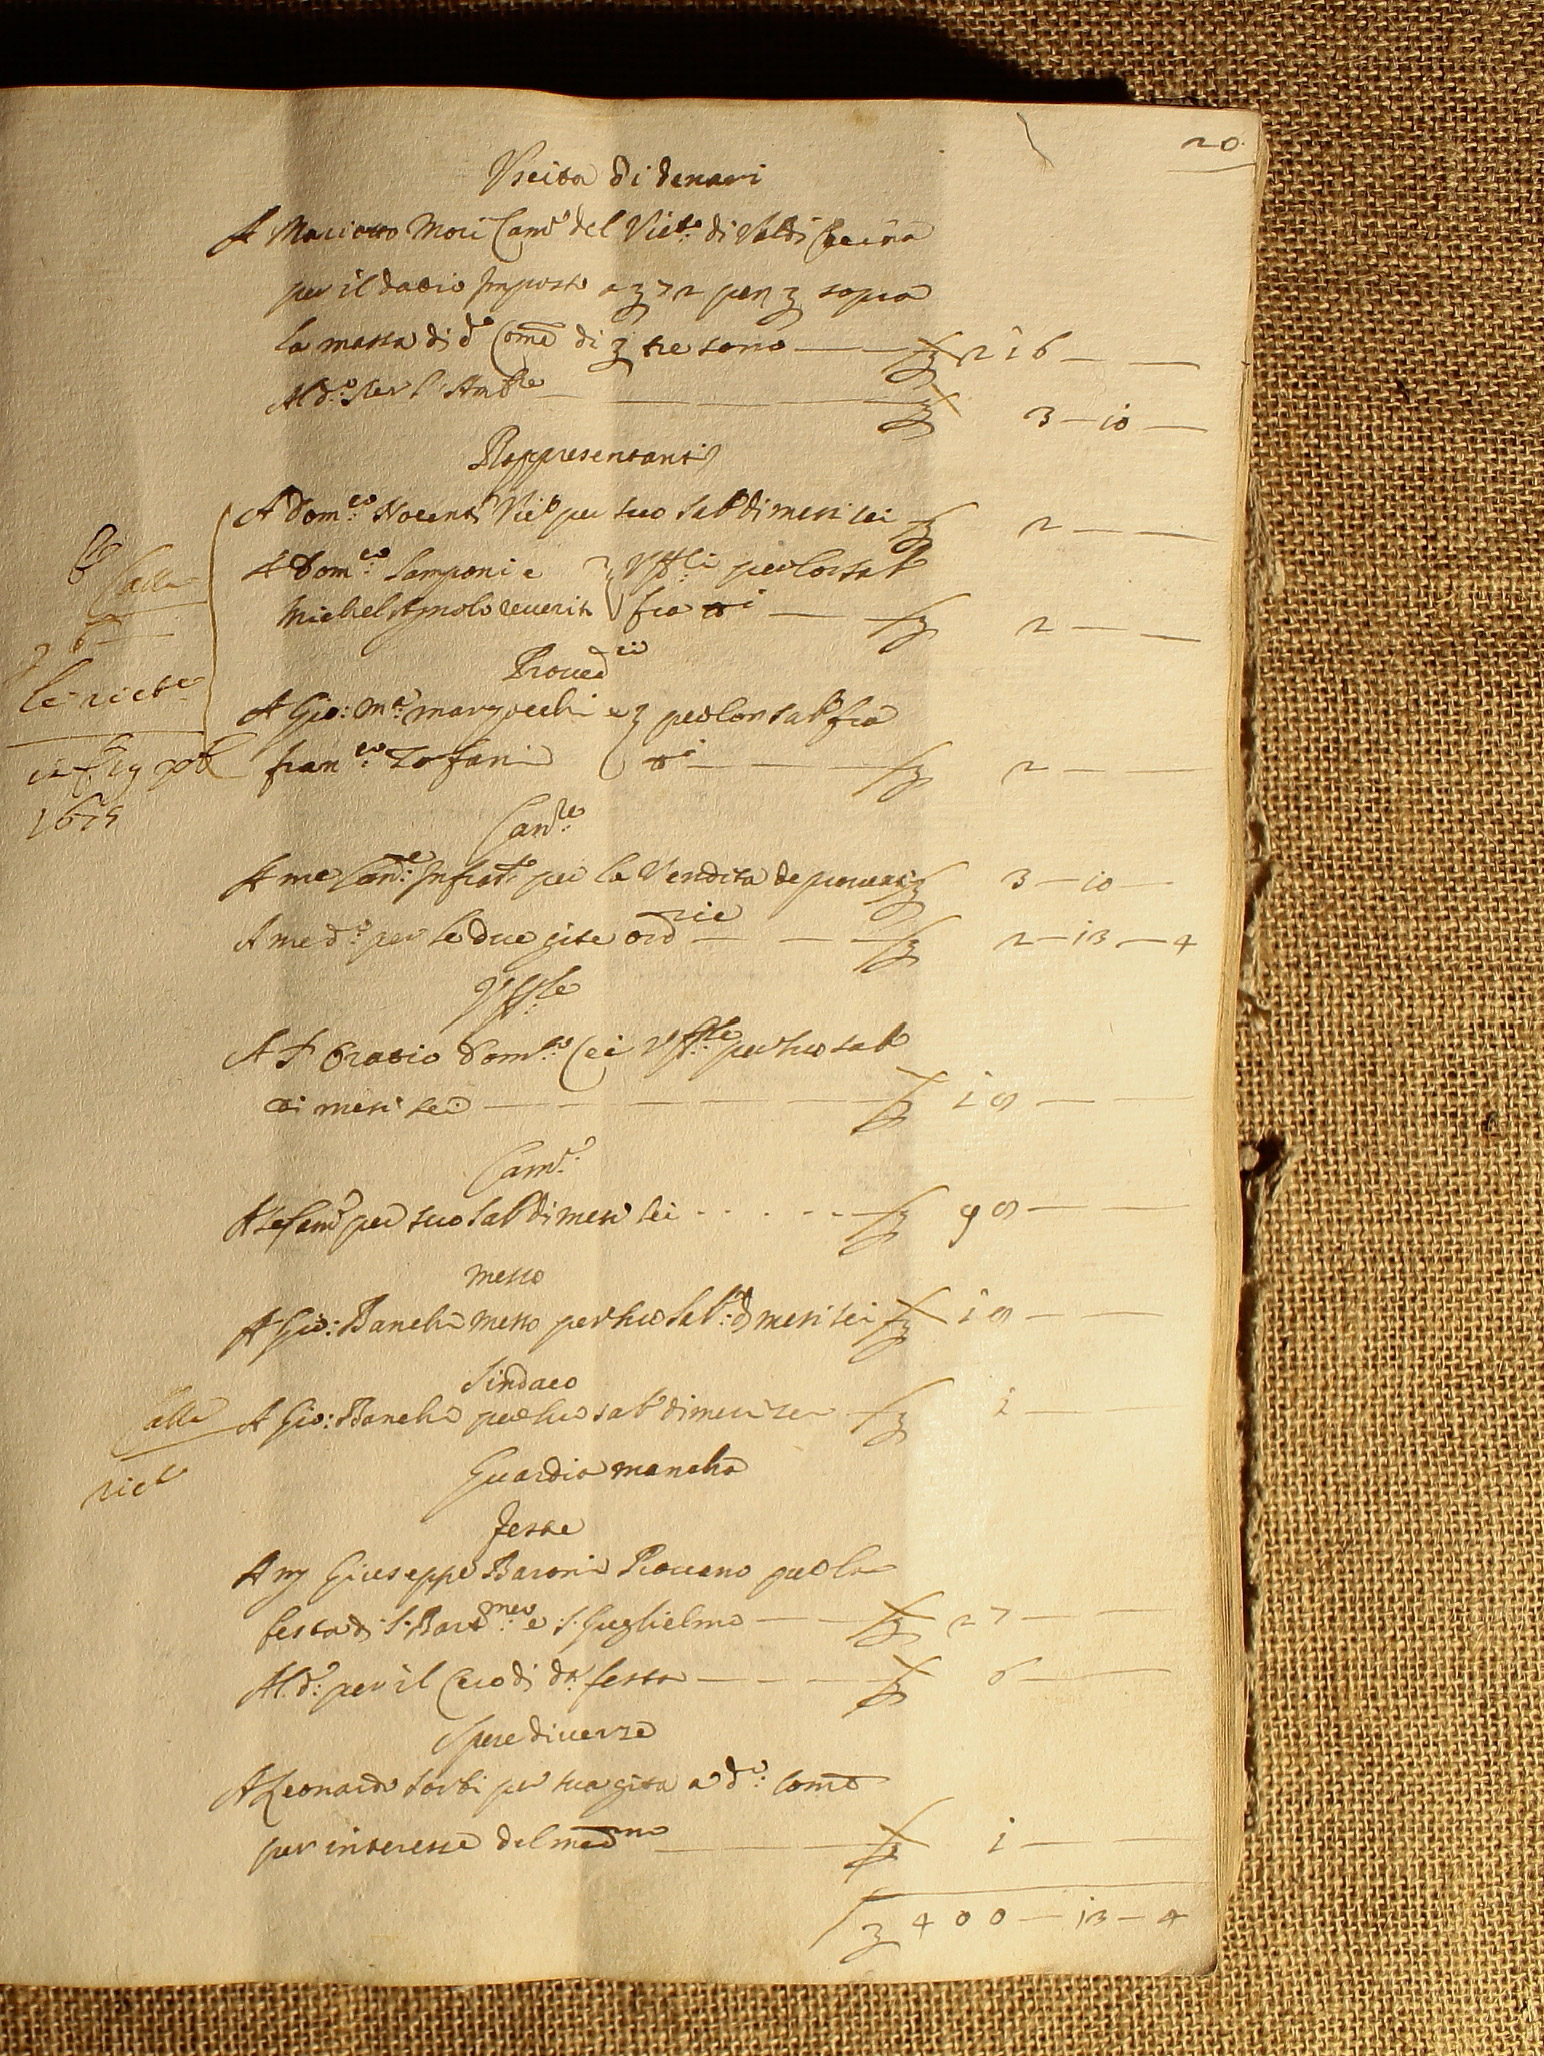 20
Vscita di denari
A Mariotto Mori Cam.º del Vic.to di Valdi Cecina
per il dazio Imposto a ʒ 72 per ʒ sopra
la massa di d.º Com.e di ʒ tre sono — — ʒ 216 — —
Al d.º per l'Amb.re — — — — ʒ 3 — 10 —
Rappresentanti
A Dom.co Nocenti Vic.º per suo sal.º di mesi sei ʒ 2 — —
A Dom.co Samponi e } Uff.li per lor sal.º
Michel Agnolo } fra di — ʒ 2 — —
Proued.ri
A Gio: M.a e } per lor sal.º fra
Fran.co Zofani } di — — — ʒ 2 — —
Can.re
A me Can.re Infra.tto per la Vendita de prouenti ʒ 3 — 10 —
A me d.º per le due gite ord.rie — — — ʒ 2 — 13 — 4
Uff.le
A Oratio Dom.co Cei Uff.le per suo sal.º
di mesi sei — — — — — ʒ 10 — —
Cam.º
A se Cam.º per suo sal.º di mesi sei . . . . . ʒ 90 — —
Messo
A Gio: Banchi Messo per suo sal.º di mesi sei ʒ 10 — —
Sindaco
A Gio: Banchi per suo sal.º di mesi sei — ʒ 1 — —
Guardia mancha
Feste
A Giuseppe Baroni Piouano per la
festa di S. Bart.meo e S. Guglielmo — — ʒ 27 — —
Al d.º per il Cero di d.a festa — — — — ʒ 6 —
Spese diuerse
A Leonardo Sorbi per sua gita a d.o Com.e
per interesse del med.mo — — ʒ 1 — —
ʒ 400 — 13 — 4
1675